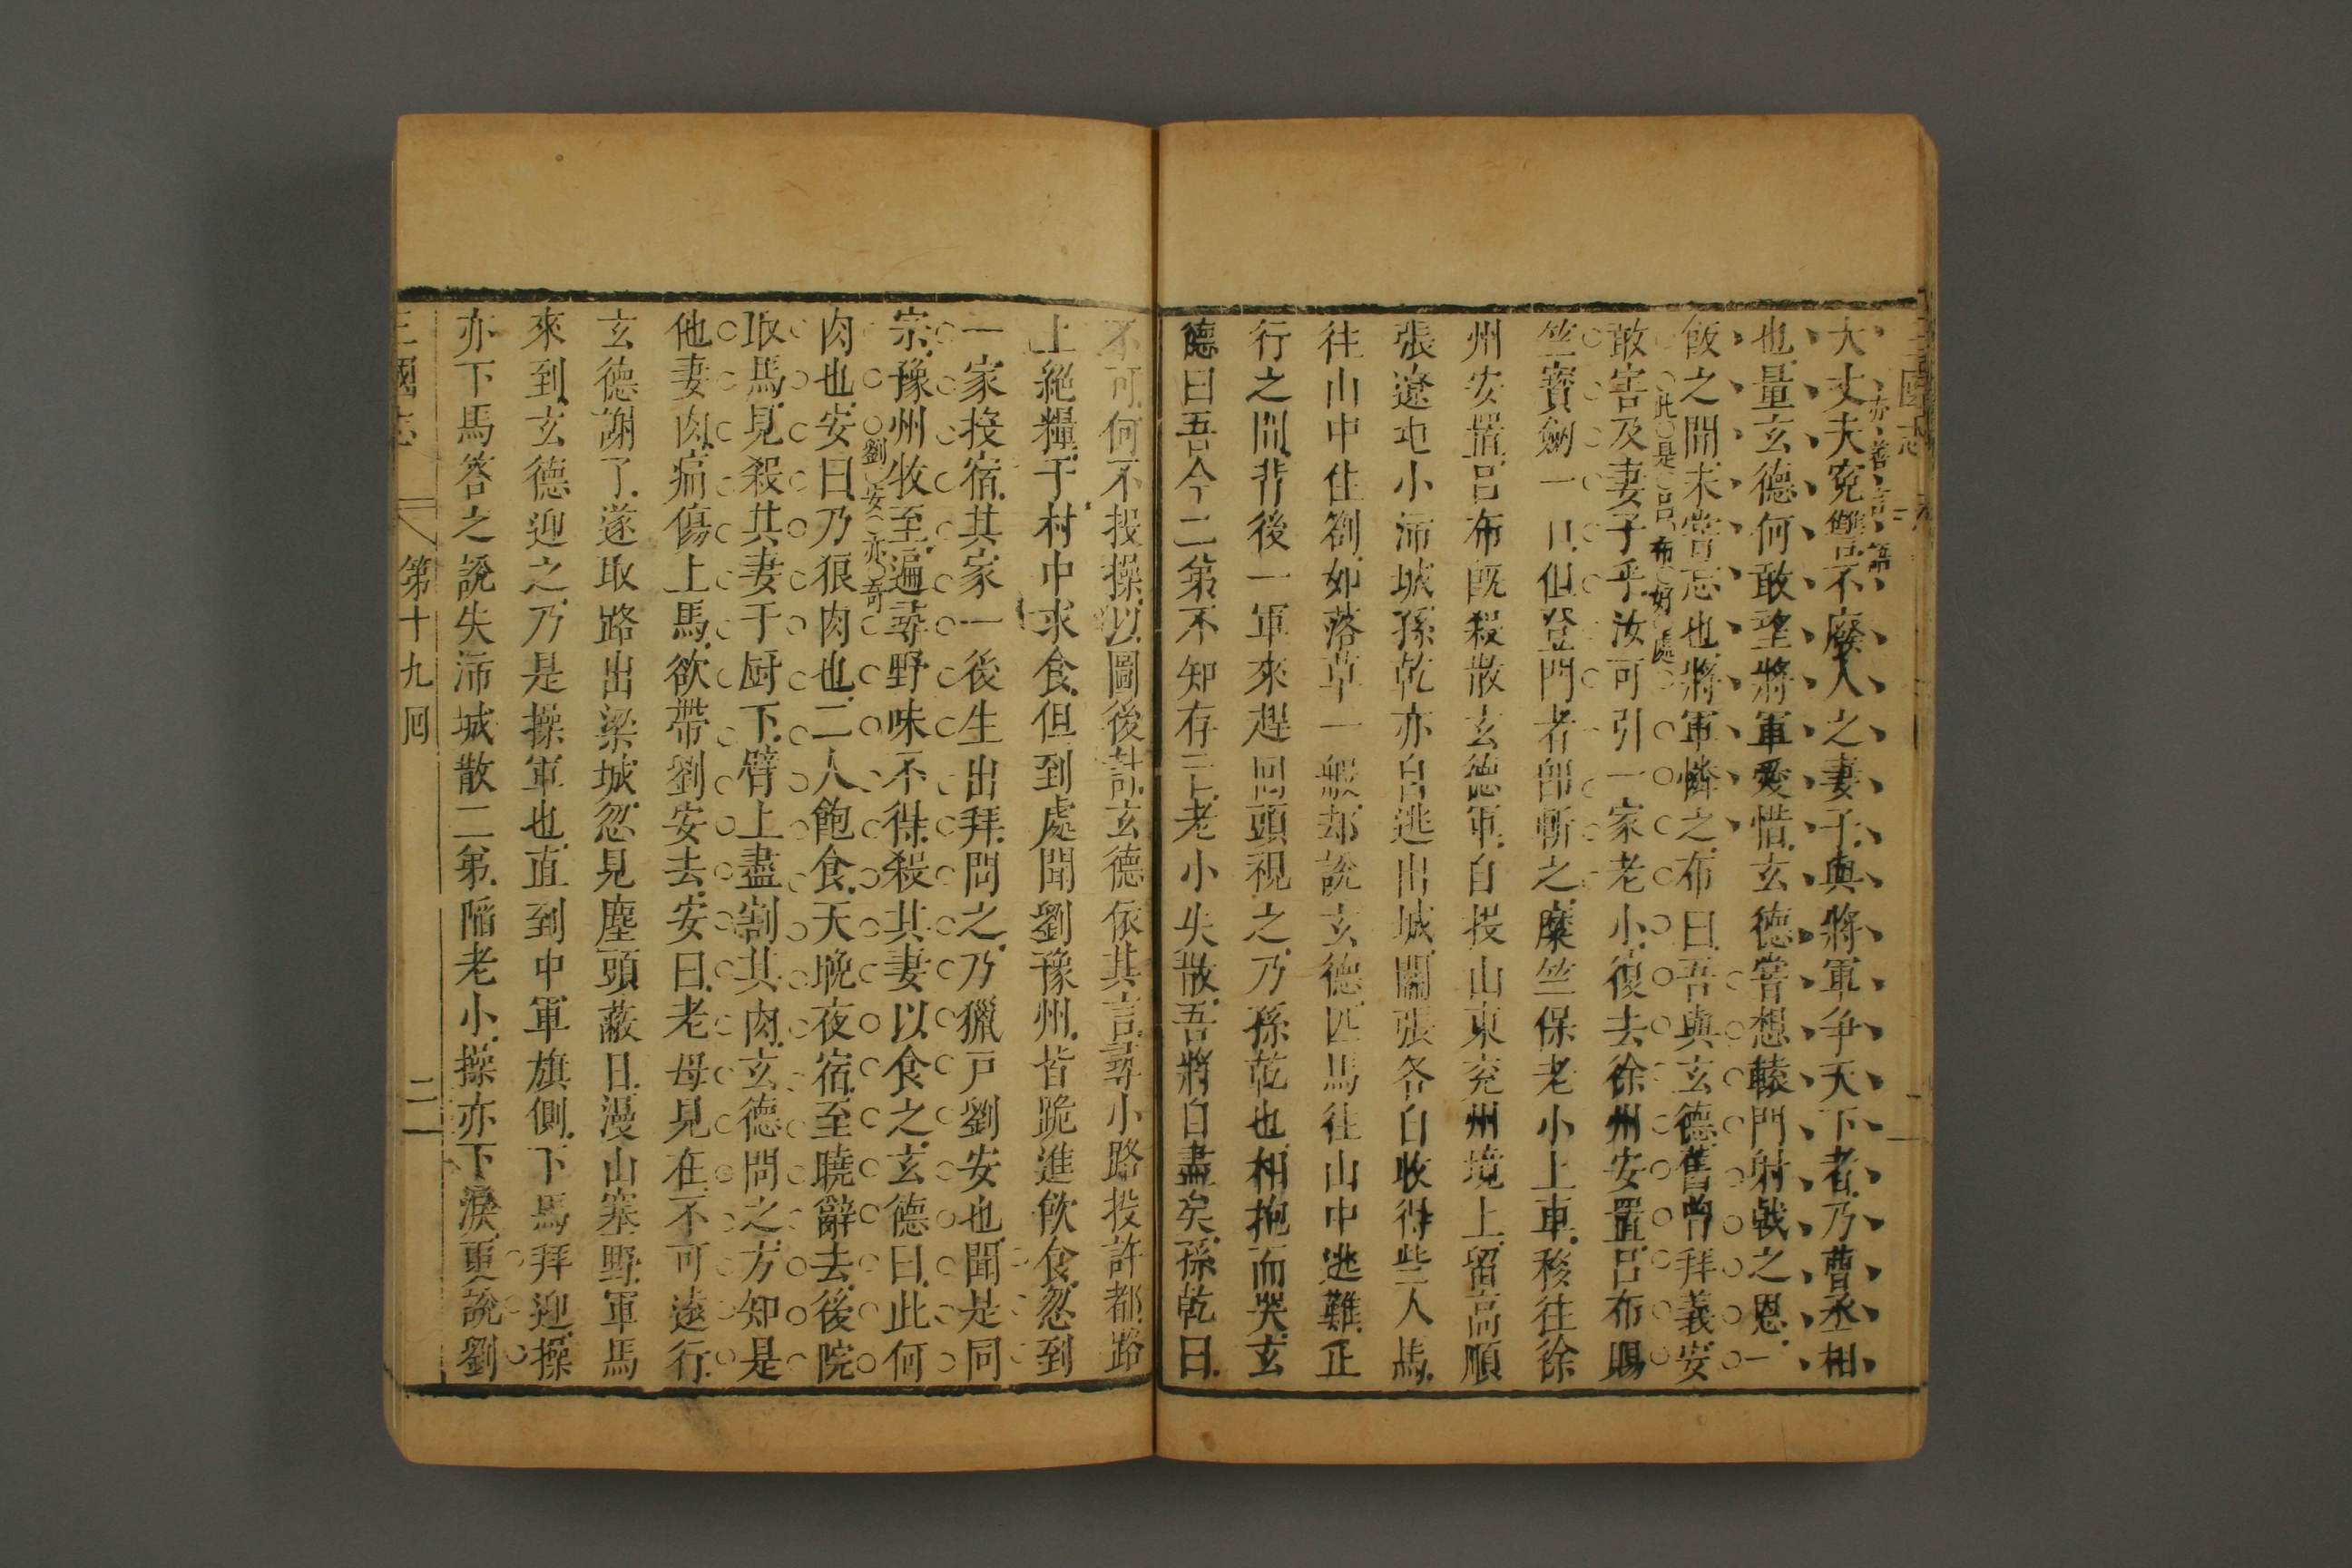 三國志
亦善言語
大丈夫寃讐不廢人之妻子與將軍争天下者乃曹丞相
也量玄德何敢望將軍愛惜玄德嘗想轅門射戟之恩一
飯之間未嘗忘也將軍憐之布曰吾與玄德舊曾拜義安
此是吕布好處
敢害及妻子乎汝可引一家老小復去徐州安置吕布賜
竺寶劒一口但登門者即斬之糜竺保老小上車移往徐
州安置吕布既殺散玄德軍自投山東兖州境上留高順
張遼屯小沛城孫乾亦自逃出城關張各自收得些人馬
往山中住劄如落草一般却說玄德匹馬往山中逃難正
行之間背後一軍來趕回頭視之乃孫乾也相抱而哭玄
德曰吾今二弟不知存亡老小失散吾將自盡矣孫乾曰
不可何不投操以圖後計玄德依其言尋小路投許都路
上絕糧于村中求食但到處聞劉豫州皆跪進飲食忽到
一家投宿其家一後生出拜問之乃獵户劉安也聞是同
宗豫州牧至遍尋野味不得殺其妻以食之玄德曰此何
劉安亦奇
肉也安曰乃狼肉也二人飽食天晚夜宿至曉辭去後院
取馬見殺其妻于厨下臂上盡割其肉玄德問之方知是
他妻肉痛傷上馬欲帶劉安去安曰老母見在不可遠行
玄德謝了遂取路出梁城忽見塵頭蔽日漫山塞野軍馬
來到玄德迎之乃是操軍也直到中軍旗側下馬拜迎操
亦下馬答之說失沛城散二弟陷老小操亦下淚更說劉
三國志 第十九囘 二